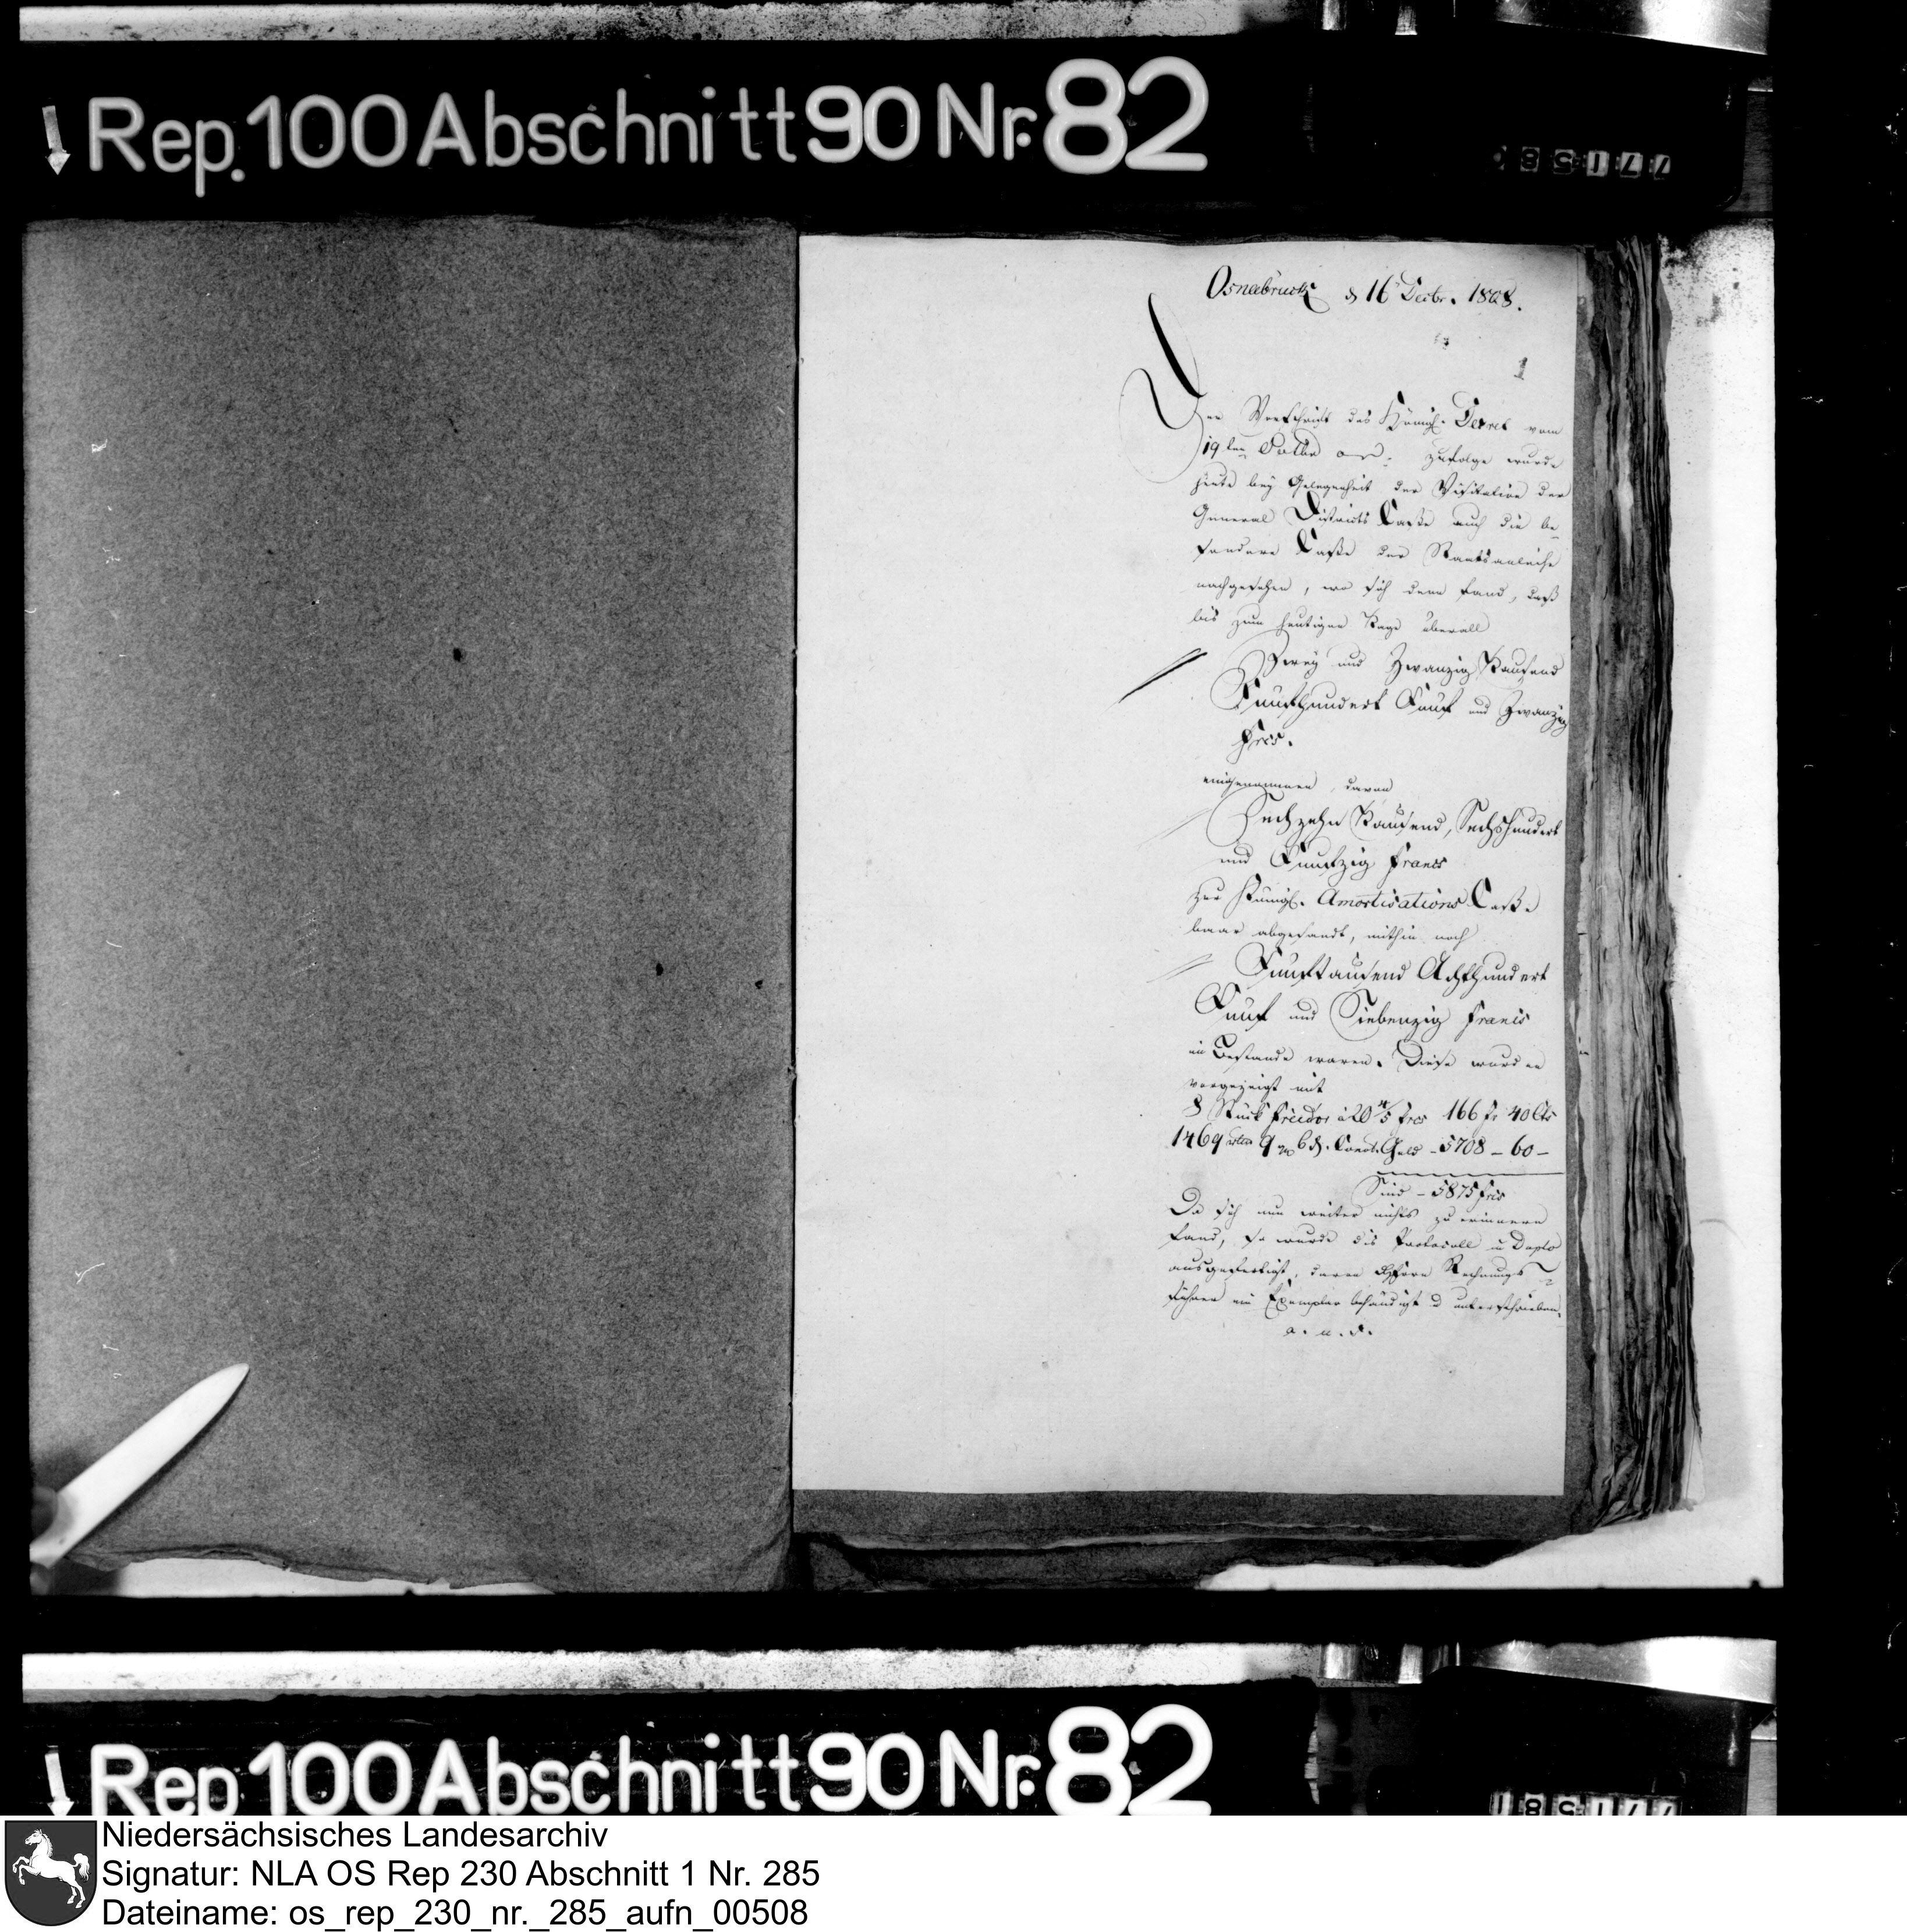 Rep. 100 Abschnitt 90 Nr. 82
Osnabrück d 16 Decbr. 1808.
1
Der Vorschrift des Königl. Decret vom
19ten Octbr zufolge wurde
heute bey Gelegenheit der Visitation der
General Districts Casse auch die be
sondere Casse der Staatsanleihe
nachgesehen, wo sich denn fand, daß
bis zum heutigen Tage überall
Zwey und Zwanzig Tausend
Fünfhundert Fünf und Zwanzig
frcs.
eingenommen, davon
Sechzehn Tausend, Sechshundert
und Funfzig francs
zur Königl. Amortisations Casse
baar abgesandt, mithin noch
Fünftausend Achthundert
Fünf und Siebenzig francs
im Bestande waren. Diese wurden
vorgezeigt mit
8 Stück friedor à 20 4/5 frcs 166 fr 40 Cts
1469 9 6 d. Convt. Geld - 5708 - 60 -
Sind - 5875 frcs
Da sich nun weiter nichts zu erinnern
fand, so wurde dis Protocoll in Duplo
ausgefertigt, davon Rechnungs
führer ein Exemplar behändigt unterschrieben.
a. u. s.
Rep 100 Abschnitt 90 Nr. 82
Niedersächsisches Landesarchiv
Signatur: NLA OS Rep 230 Abschnitt 1 Nr. 285
Dateiname: os_rep_230_nr._285_aufn_00508